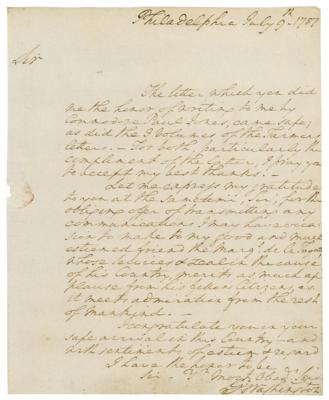 Philadelphia July 9th 1787
Sir
The letter which you did
me the honor of writing to me by
Commodore Paul Jones, came safe;
as did the 3 Volumes of the Farmers
letters. – For both, particularly the
compliment of the latter, I pray you
to accept my best thanks. –
Let me express my gratitude
to you at the same time, Sir, for the
obliging offer of transmitting any
communications I may have occa
sion to make to my good and much
esteemed friend the Marqs. de la Fayette
whose services & zeal in the cause
of his Country, merits as much ap
plause from his fellow Citizens, as
it meets admiration from the rest
of mankind. –
I congratulate you on your
safe arrival in this Country – and
with sentiments of esteem & regard
I have the honor to be
Sir – Yr Most Obedt Ser
G. Washington